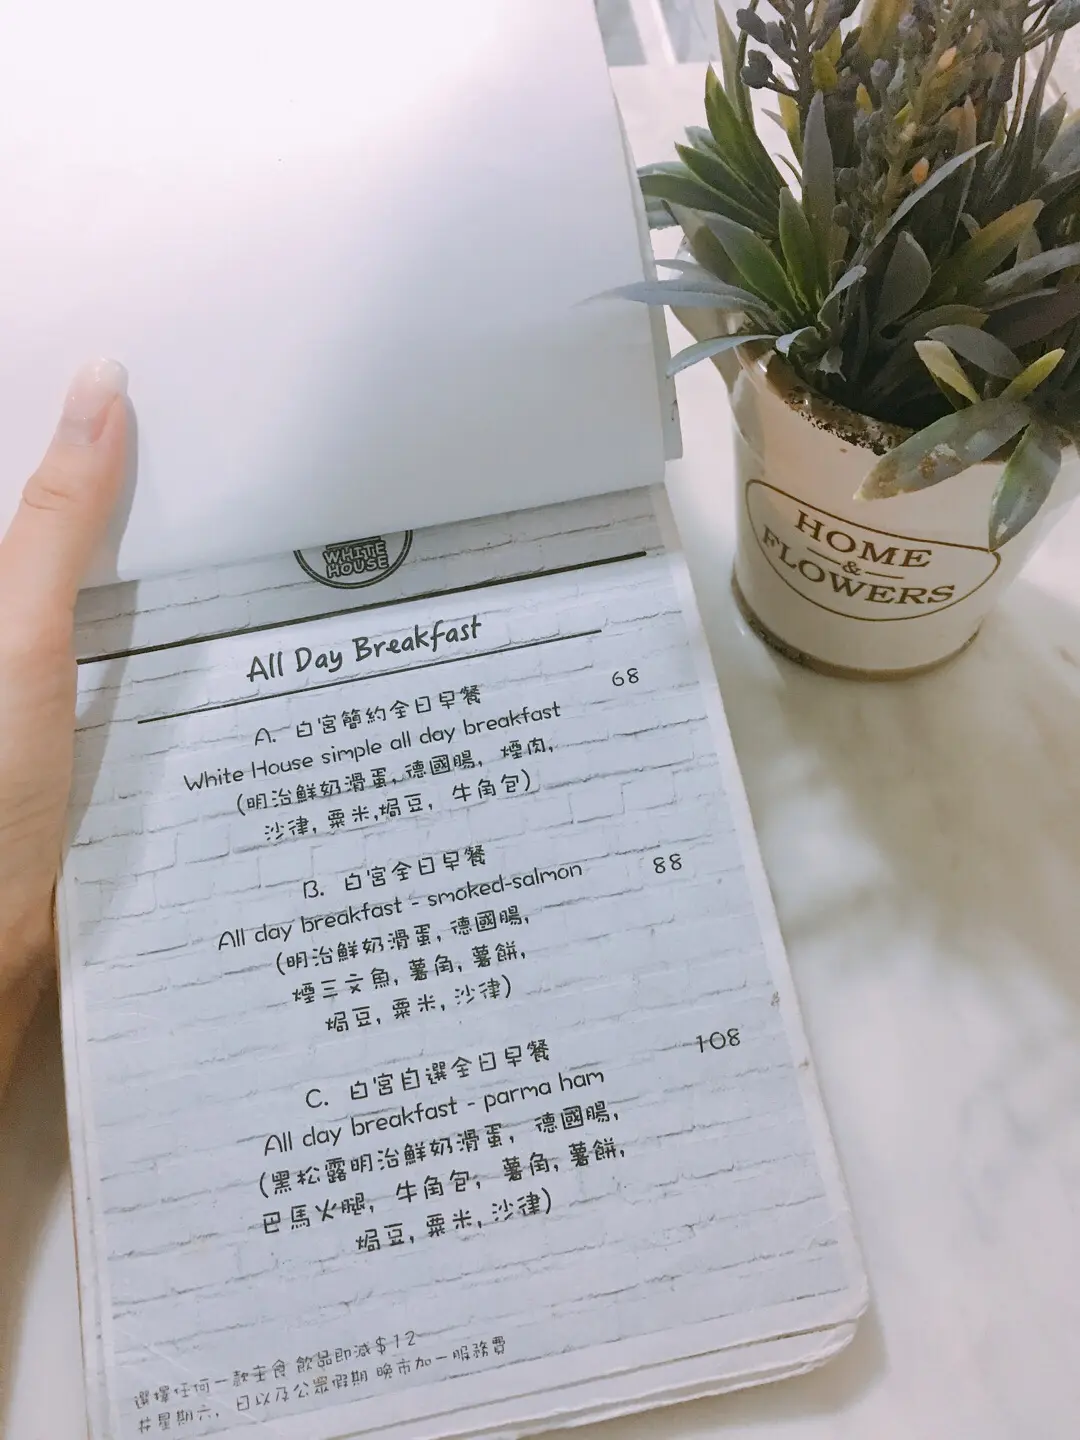 WHITE
HOUSE
All Day Breakfast
A. 白宮簡約全日早餐 68
White House simple all day breakfast
(明治鮮奶滑蛋, 德國腸, 煙肉,
沙律, 粟米, 焗豆, 牛角包)
B. 白宮全日早餐 88
All day breakfast - smoked-salmon
(明治鮮奶滑蛋, 德國腸,
煙三文魚, 薯角, 薯餅,
焗豆, 粟米, 沙律)
C. 白宮自選全日早餐 108
All day breakfast - parma ham
(黑松露明治鮮奶滑蛋, 德國腸,
巴馬火腿, 牛角包, 薯角, 薯餅,
焗豆, 粟米, 沙律)
選擇任何一款主食 飲品即減$12
#星期六, 日以及公眾假期 晚市加一服務費
HOME
&
FLOWERS